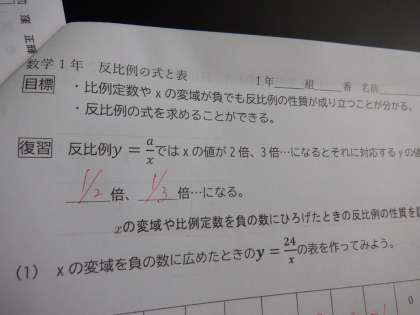 数学1年 反比例の式と表
1年 組 番 名前
目標 ・比例定数や x の変域が負でも反比例の性質が成り立つことが分かる。
・反比例の式を求めることができる。
復習 反比例y = a/x では x の値が 2 倍、3 倍…になるとそれに対応する y の値
1/2 倍、 1/3 倍…になる。
xの変域や比例定数を負の数にひろげたときの反比例の性質を
(1) x の変域を負の数に広めたときのy = 24/x の表を作ってみよう。
0